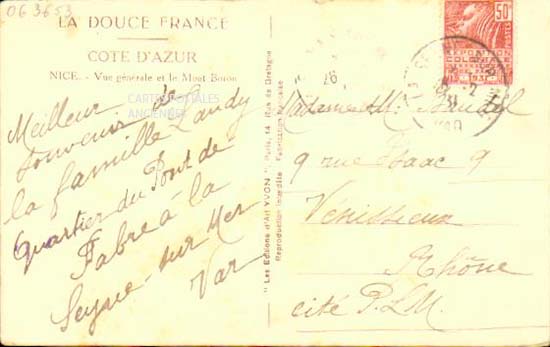 063653
LA DOUCE FRANCE
COTE D'AZUR
NICE. - Vue générale et le Mont Boron
CARTES POSTALES
ANCIENNES
Meilleur
souvenir de
la famille Landy
Quartier du Pont de
Fabre à la
Seyne-sur Mer
Var
"Les Editions d'Art YVON", Paris, 14, Rue de Bretagne
Reproduction Interdite Fabrication Française
26
50c
POSTES
EXPOSITION
COLONIALE
INTERNATIONALE
PARIS 1931
VAR
Madame M.
9 rue Isaac 9
Vénissieux
Rhône
cité P.L.M.